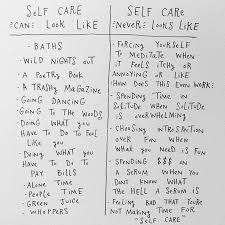 SELF CARE
"CAN" LOOK LIKE
- BATHS
- WILD NIGHTS OUT
- A POETRY BOOK
- A TRASHY MAGAZINE
- GOING DANCING
- GOING TO THE WOODS
- DOING WHAT YOU
HAVE TO DO TO FEEL
LIKE YOU
- DOING WHAT YOU
HAVE TO DO TO
PAY BILLS
- ALONE TIME
- PEOPLE TIME
- GREEN JUICE
- WHOPPERS
SELF CARE
"NEVER" LOOKS LIKE
- FORCING YOURSELF
TO MEDITATE WHEN
IT FEELS ITCHY OR
ANNOYING OR LIKE
HOW DOES THIS EVEN WORK
- SPENDING TIME IN
SOLITUDE WHEN SOLITUDE
IS OVERWHELMING
- CHOOSING INTROSPECTION
OVER FUN WHEN
WHAT YOU NEED IS FUN
- SPENDING $$$ ON
A SERUM WHEN YOU
DONT KNOW WHAT
THE HELL A SERUM IS
- FEELING BAD THAT YOURE
NOT MAKING TIME FOR
"SELF CARE"